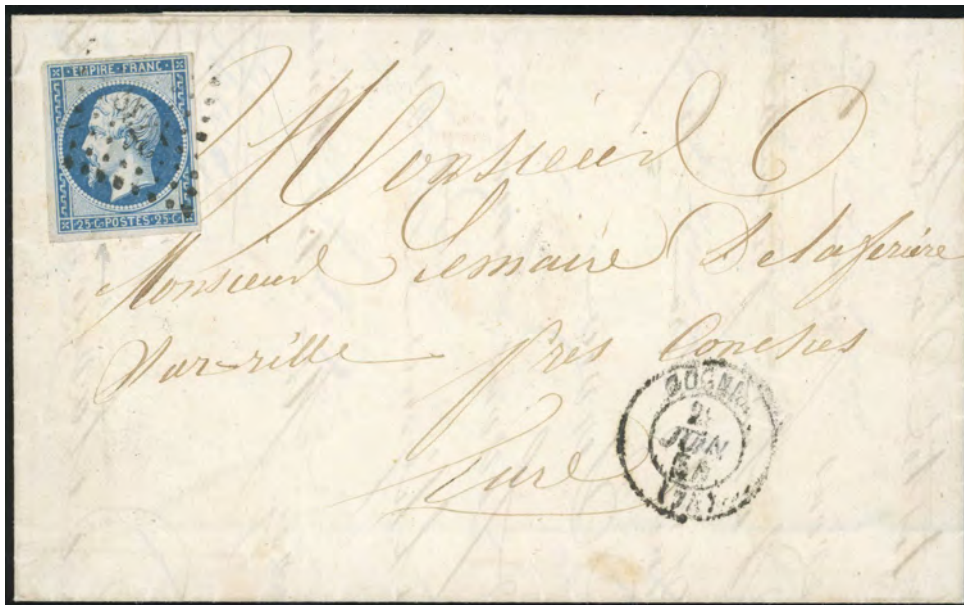 EMPIRE · FRANC ·
25 · C · POSTES · 25 · C
Monsieur
Monsieur Lemaire Delaferrière
près Conches
Eure
JUIN